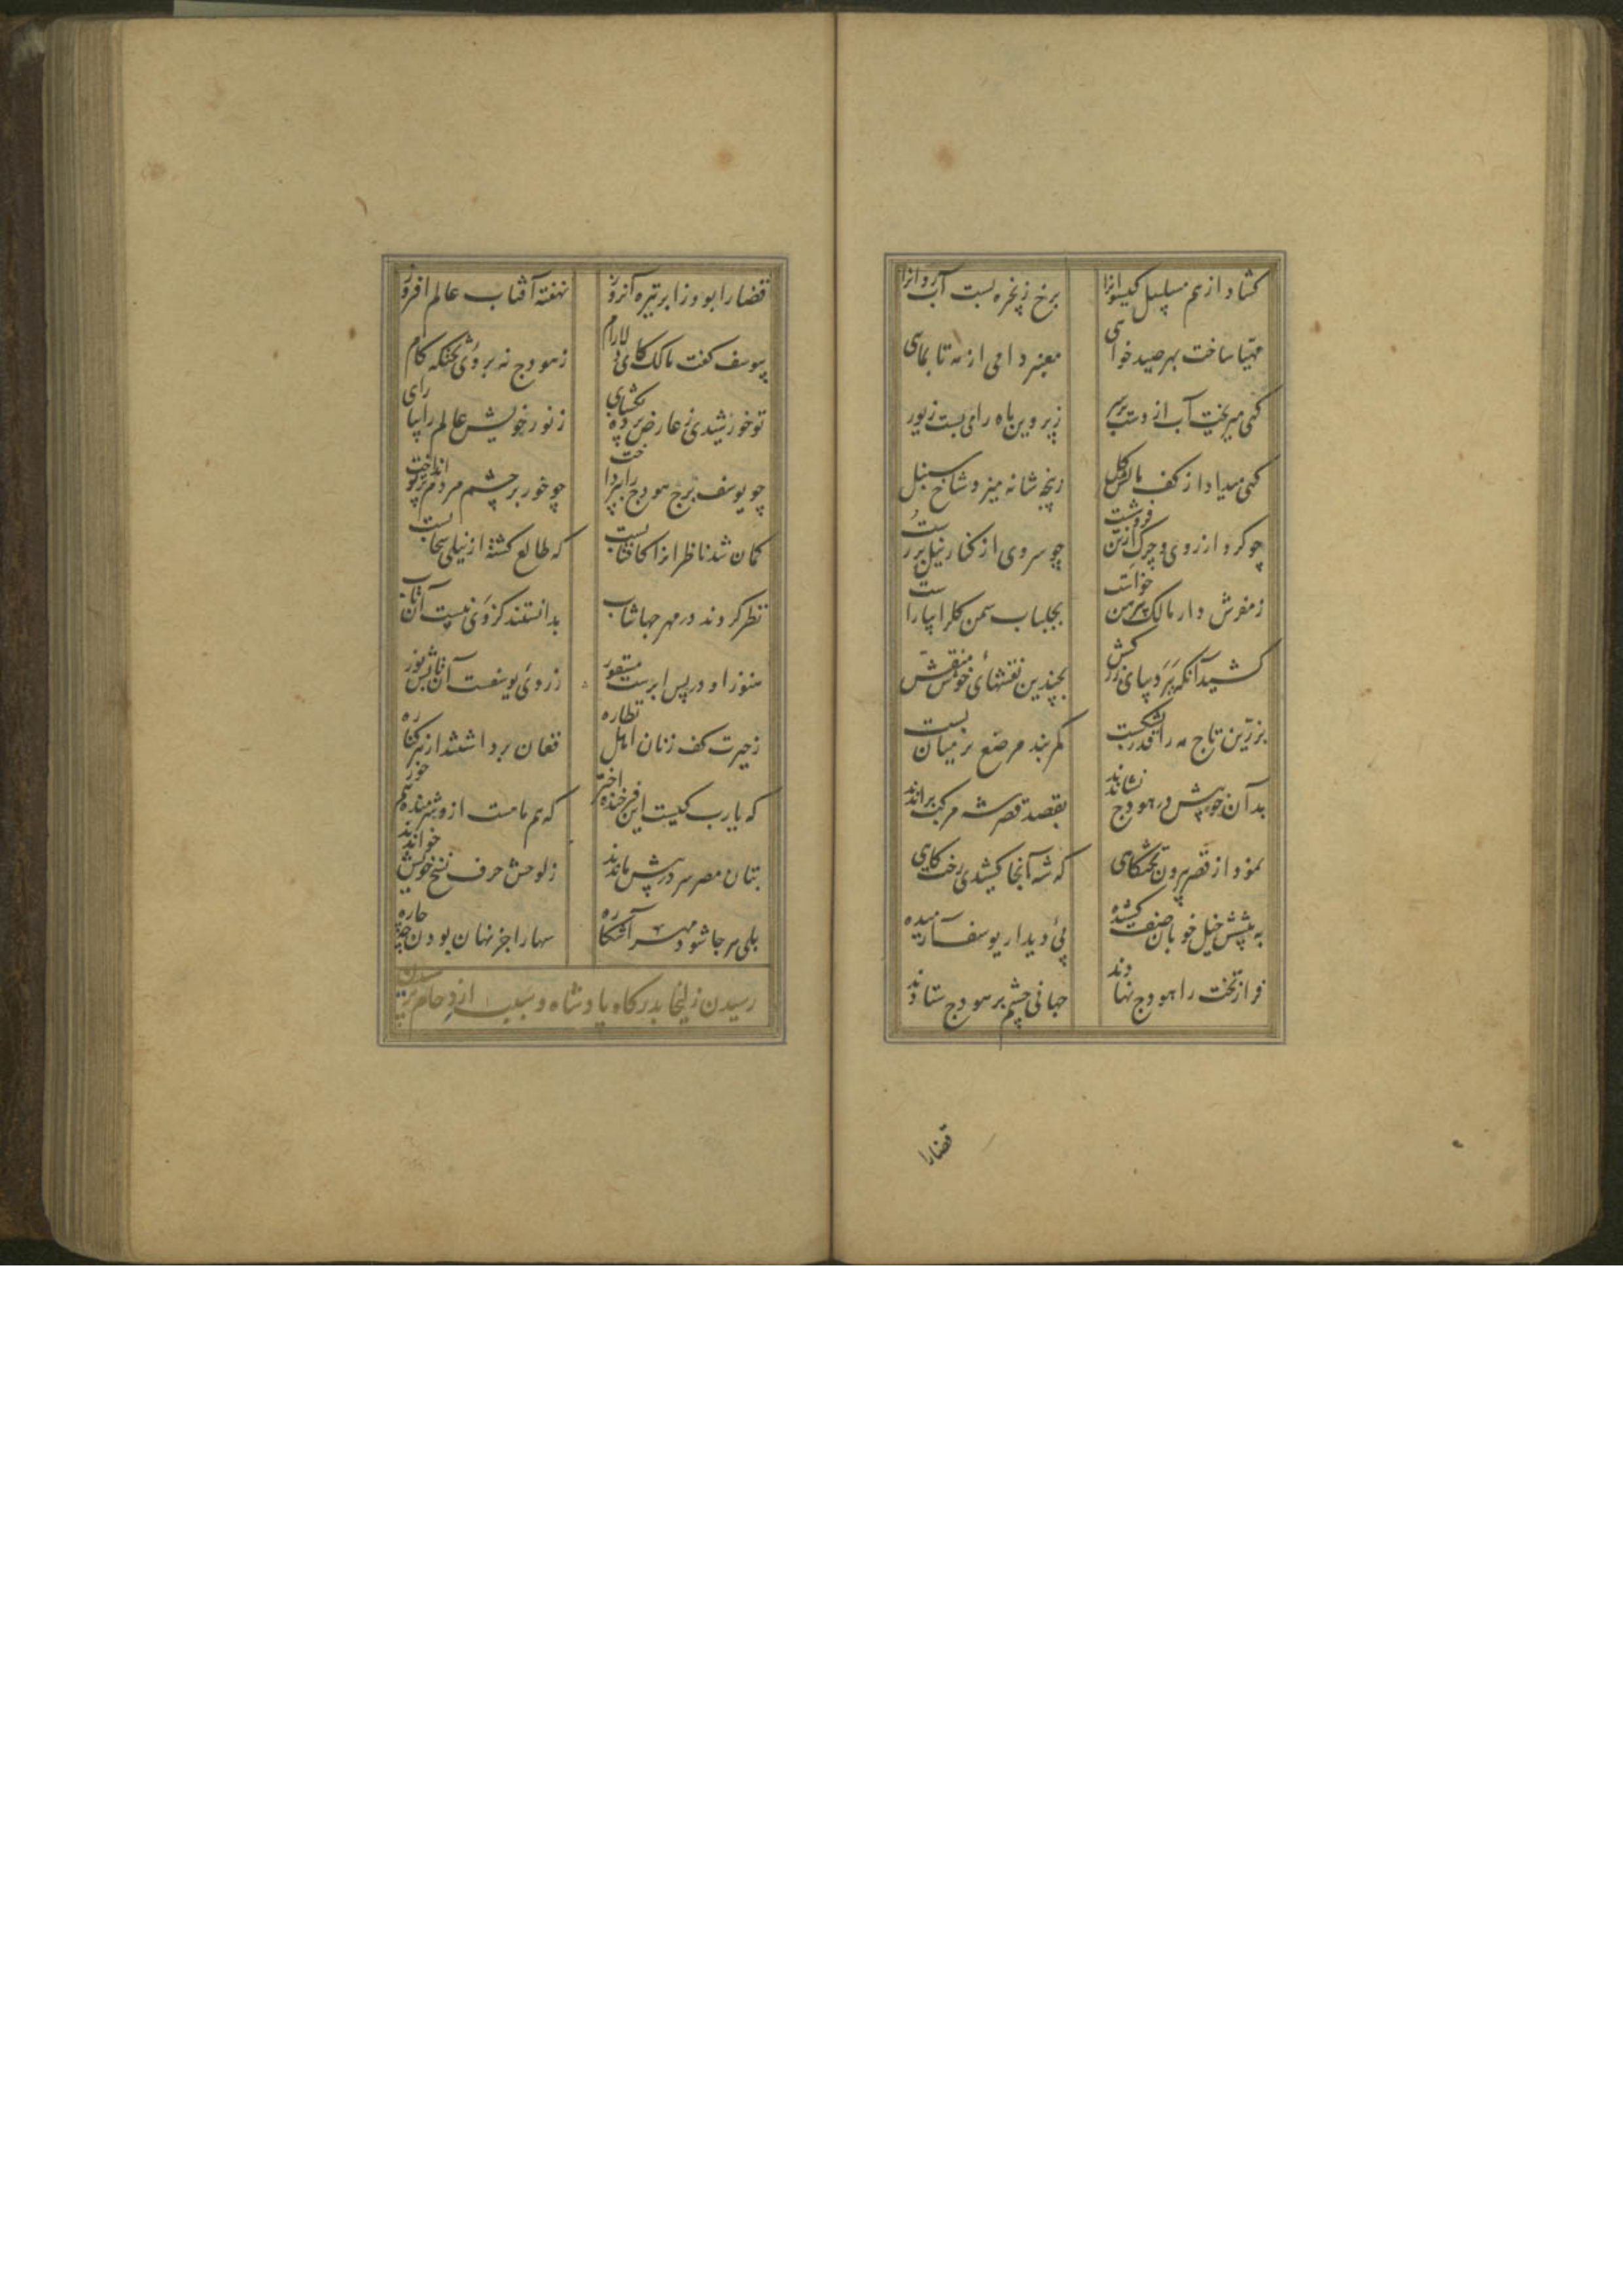 کشاد از هم مسلسل کیسوانرا
برخ زنجیره بست آب روانرا
مهیا ساخت بهر صید خواهی
معنبر دامی از مه تا بماهی
کهی میریخت آب از دست بر سر
ز پروین ماه را می بست زیور
کهی میداد از کف مالش کل
ز پنجه شانه میزد شاخ سنبل
چو کرد از روی و چرک از تن فروشست
چو سروی از کنار نیل بر رست
ز مفرش دار مالک پیرهن خواست
بجلباب سمن کلرا بیاراست
کشید آنکه ببر دیبای زرکش
بچندین نقشهای خوش منقش
بزرین تاج مه را قدر بشکست
کمربند مرصع بر میان بست
بدان خوبیش در هودج نشاندند
بقصد قصر شه مرکب براندند
بود از قصر بیرون تختکاهی
که شه آنجا کشیدی رخت کاهی
به پیشش خیل خوبان صف کشیده
پی دیدار یوسف آرمیده
فراز تخت را هودج نهادند
جهانی چشم بر هودج ستادند
قضارا
قضا را بود ز ابر تیره آنروز
نهفته آفتاب عالم افروز
بیوسف کفت مالک کای دلارام
ز هودج نه برون بر تختکه کام
تو خورشیدی ز عارض پرده بکشای
ز نور خویش عالم را بیارای
چو یوسف برج هودج را بپرداخت
چو خور بر چشم مردم پرتو انداخت
کمان شد ناظرانرا کافتابست
که طالع کشته از نیلی سحابست
نظر کردند در مهر جهانتاب
بدانستند کز وی نیست آن تاب
هنوز او در پس ابرست مستور
ز روی یوسفست آن تابش نور
ز حیرت کف زنان اهل نظاره
فغان برداشتند از هر کناره
که یارب کیست این فرخنده اختر
که هم ماهست ازو شرمنده هم خور
بتان مصر سر در پیش ماندند
ز لوحش حرف نسخ خویش خواندند
بلی هر جا شود مهر آشکاره
سها را جز نهان بودن چه چاره
رسیدن زلیخا بدرکاه پادشاه و سبب ازدحام پرسیدن